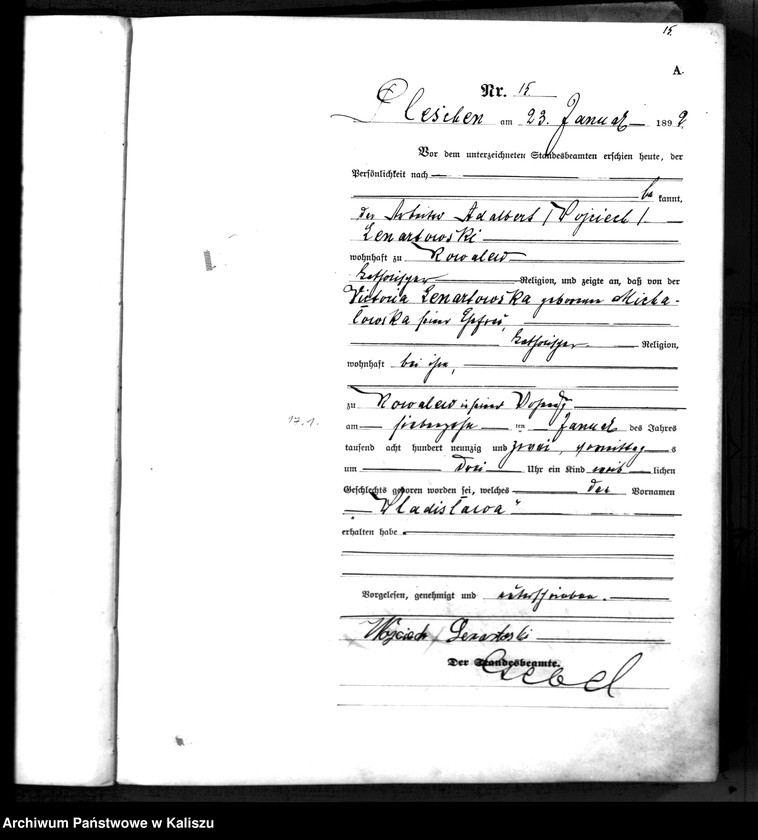 15.
A.
Nr. 15
Pleschen am 23. Januar 1892.
Vor dem unterzeichneten Standesbeamten erschien heute, der
Persönlichkeit nach
be kannt,
der Arbeiter Adalbert (Wojciech)
Lenartowski
wohnhaft zu Kowalew
katholischer Religion, und zeigte an, daß von der
Victoria Lenartowska geborenen Micha-
łowska seiner Ehefrau,
katholischer Religion,
wohnhaft bei ihm,
zu Kowalew in seiner Wohnung
am siebenzehn ten Januar des Jahres
17.1.
tausend acht hundert neunzig und zwei, vormittag s
um drei Uhr ein Kind weib lichen
Geschlechts geboren worden sei, welches den Vornamen
"Wladisława"
erhalten habe.
Vorgelesen, genehmigt und unterschrieben.
Wojciech Lenartoski
Der Standesbeamte.
Archiwum Państwowe w Kaliszu